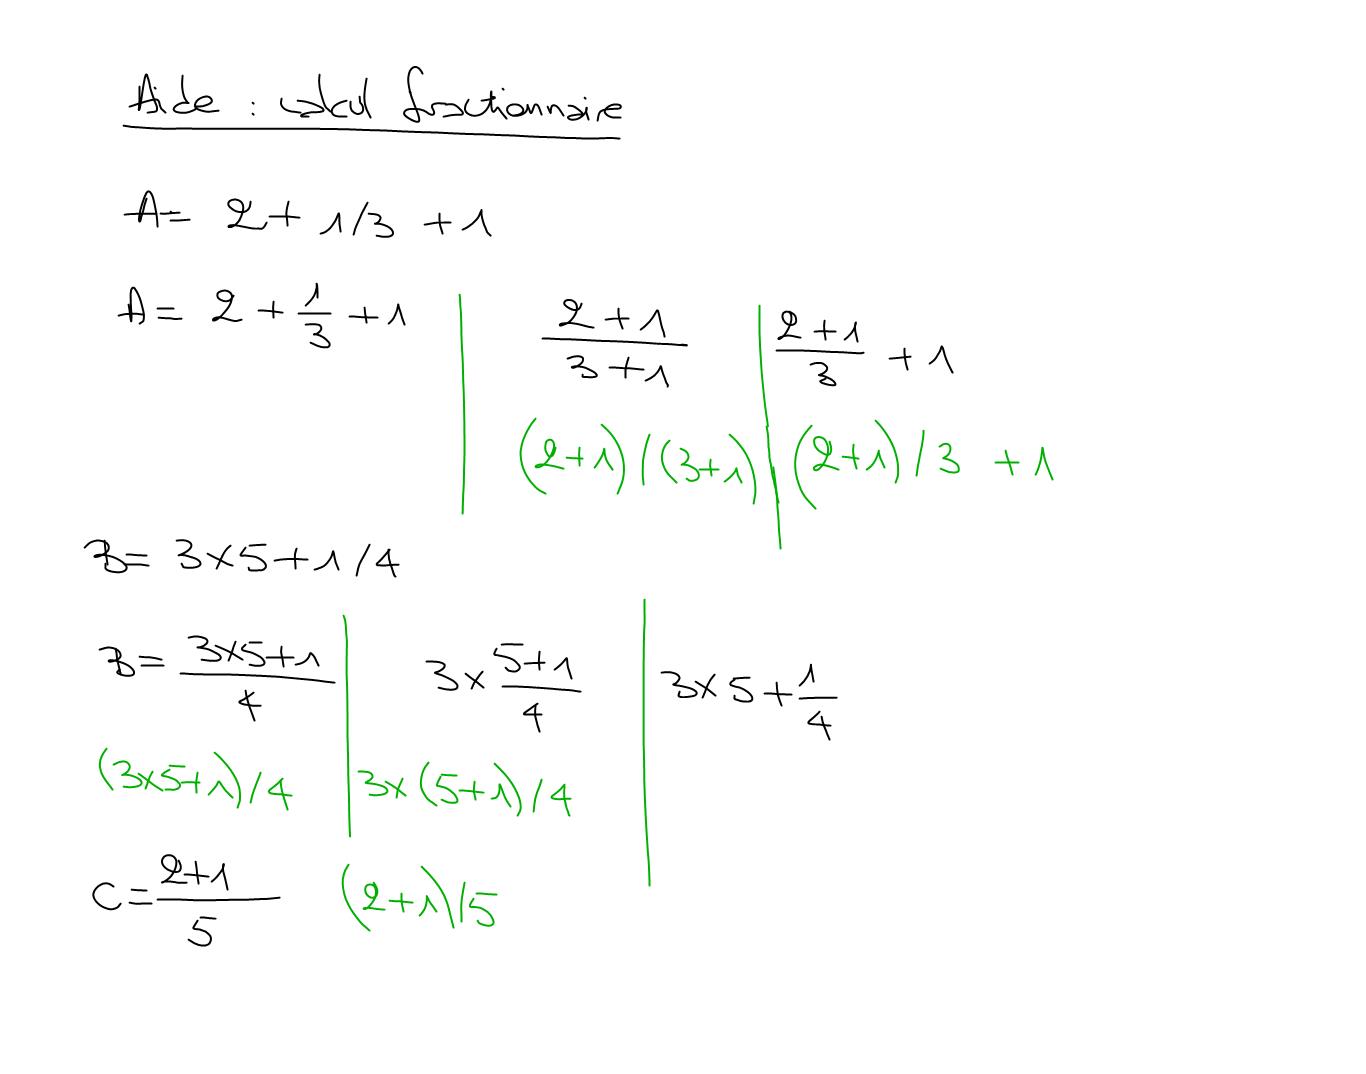 Aide : calcul fractionnaire
A= 2+ 1/3 +1
A= 2 + \frac{1}{3} +1 | \frac{2+1}{3+1} | \frac{2+1}{3} +1
(2+1)/(3+1) | (2+1)/3 +1
B= 3×5+1/4
B= \frac{3×5+1}{4} | 3× \frac{5+1}{4} | 3×5+ \frac{1}{4}
(3×5+1)/4 | 3×(5+1)/4
C= \frac{2+1}{5} (2+1)/5